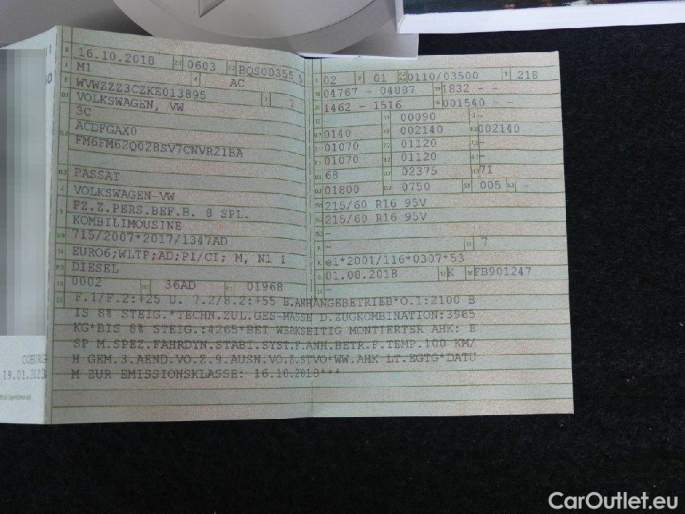 16.10.2018 0603 BQS0D355 5
M1 AC
WVWZZZ3CZKE013895 7
VOLKSWAGEN, VW
3C
ACDFGAX0
FM6FM62Q028SV7CNVR21BA
PASSAT
VOLKSWAGEN-VW
FZ.Z.PERS.BEF.B. 8 SPL.
KOMBILIMOUSINE
715/2007*2017/1347AD
EURO6;WLTP;AD;PI/CI; M, N1 I
DIESEL
0002 36AD 01968
02 01 0110/03500 218
04767 - 04887 1832 - -
1462 - 1516 001540 - -
00090 -
0140 002140 002140
01070 01120 -
01070 01120 -
68 02375 71
01800 0750 005 -
215/60 R16 95V
215/60 R16 95V
-
- 7
e1*2001/116*0307*53
01.08.2018 K WFB901247
F.1/F.2:+25 U. 7.2/8.2:+55 B.ANHÄNGEBETRIEB*O.1:2100 B
IS 8% STEIG.*TECHN.ZUL.GES-MASSE D.ZUGKOMBINATION:3985
KG*BIS 8% STEIG.:4265*BEI WERKSEITIG MONTIERTER AHK: E
SP M.SPEZ.FAHRDYN.STABI.SYST.F.ANH.BETR.F.TEMP.100 KM/
H GEM.3.AEND.VO.Z.9.AUSN.VO.Z.STVO*WW.AHK LT.EGTG*DATU
M ZUR EMISSIONSKLASSE: 16.10.2018***
CarOutlet.eu